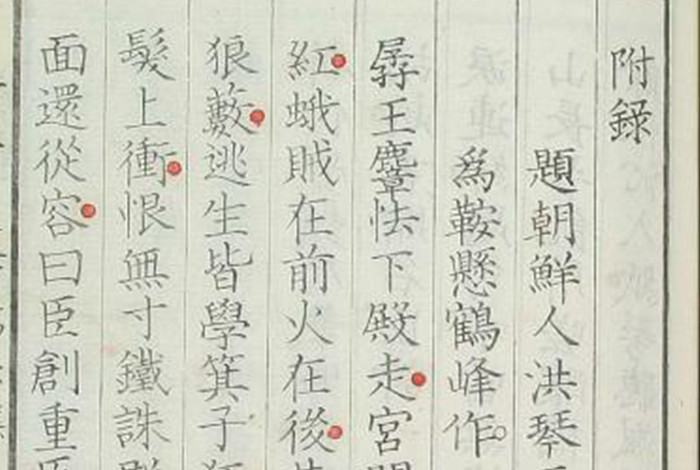 附錄
題朝鮮人洪琴
爲鞍懸鶴峰作
孱王麞怯下殿走宮
紅蛾賊在前火在後
狼藪逃生皆學箕子
髮上衝恨無寸鐵誅
面還從容曰臣創重